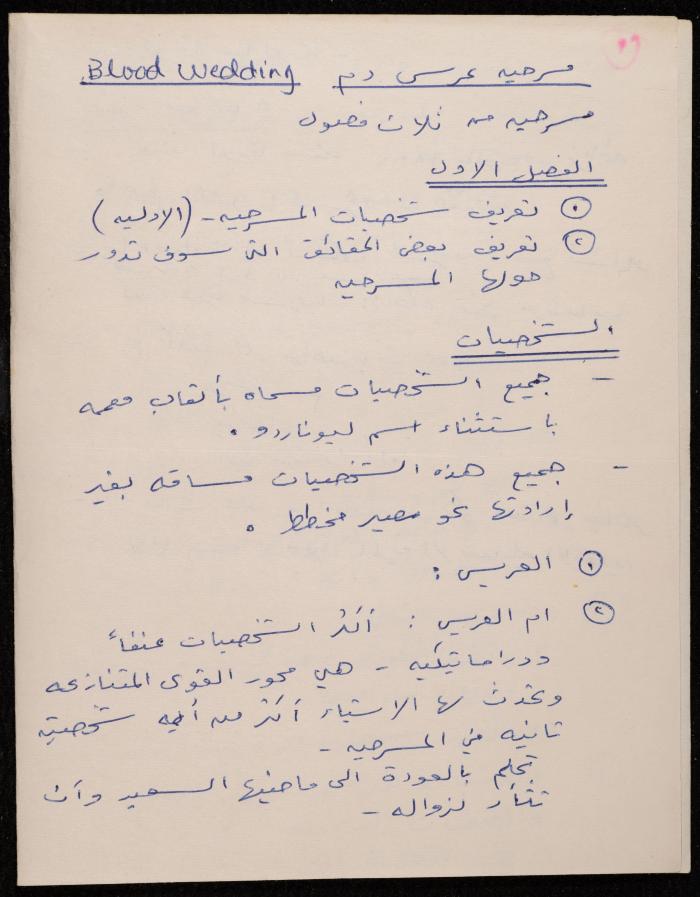 مسرحيه عرس دم Blood Wedding
مسرحيه من ثلاث فصول
الفصل الاول
① تعريف شخصيات المسرحيه - (الاوليه)
② تعريف بعض الحقائق التى سوف تدور
حولها المسرحيه
الشخصيات
- جميع الشخصيات مسماه بألقاب مهمه
باستثناء اسم ليوناردو .
- جميع هذه الشخصيات مساقه بغير
إرادتها نحو مصير مخطط .
① العريس :
② ام العريس : أكثر الشخصيات عنفاً
ودراماتيكيه - هي محور القوى المتنازعه
وتحدث لها الاشياء أكثر من أيه شخصية
ثانيه في المسرحيه -
تحلم بالعودة الى ماضيها السعيد وأن
تثأر لزواله -